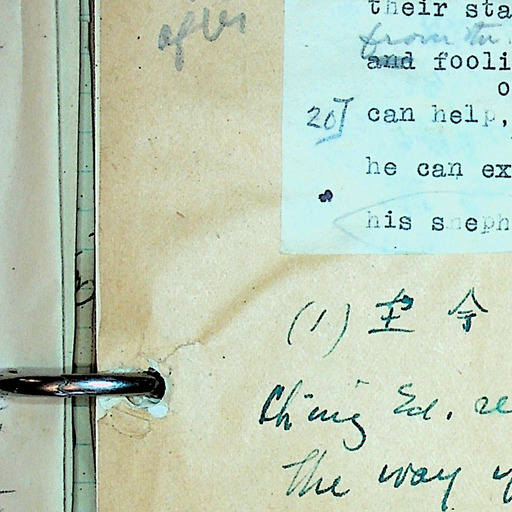 after
their sta
from the
and fooli
o
20] can help,
he can ex
his sheph
(1)
Ch'ing Ed. re
The way